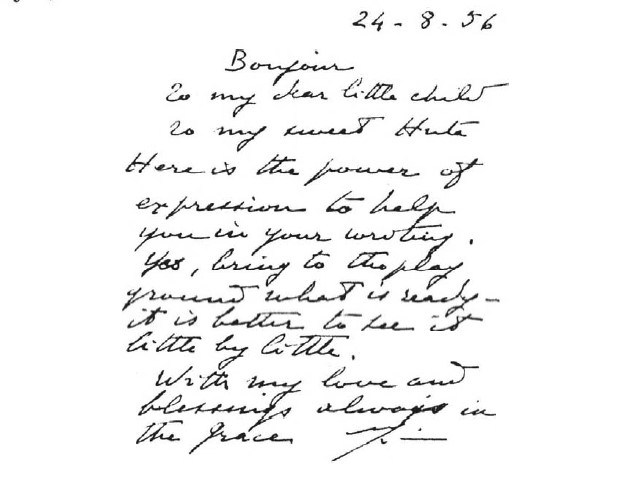 24 - 8 - 56
Bonjour
to my dear little child
to my sweet Huta
Here is the power of
expression to help
you in your writing.
Yes, bring to the play
ground what is ready -
it is better to see it
little by little.
With my love and
blessings always in
the grace